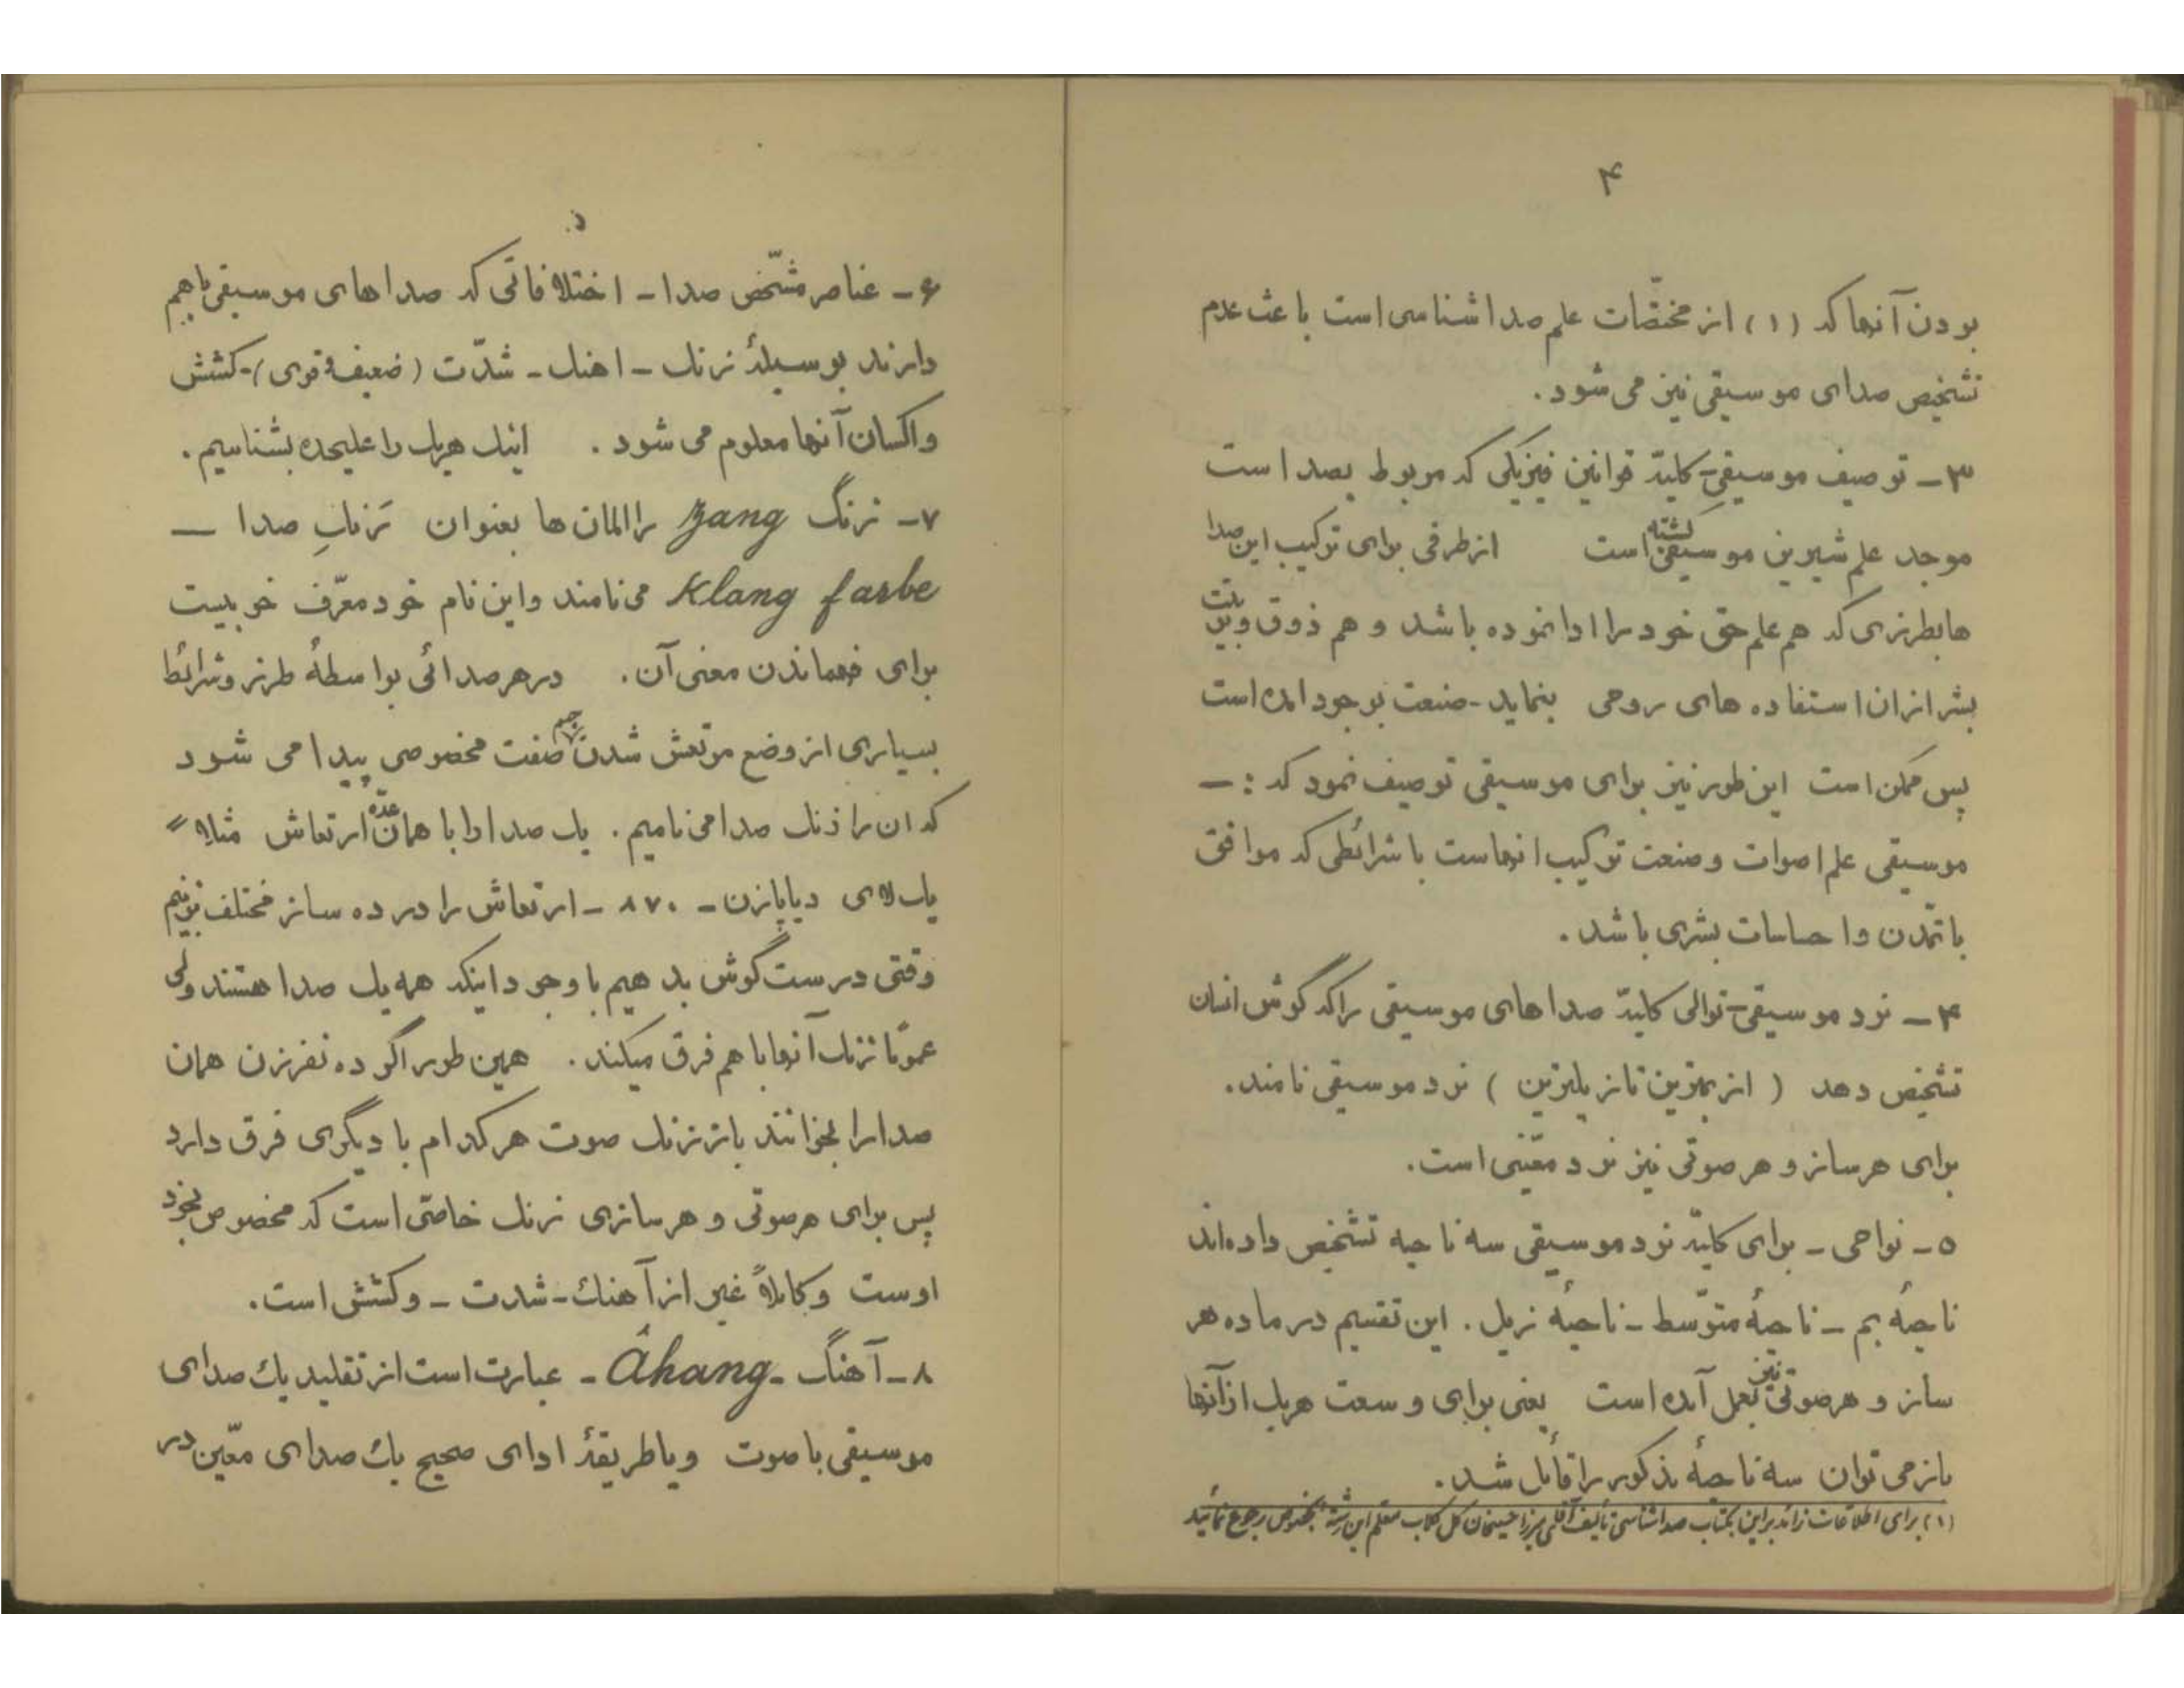 ۴
بودن آنها که (۱) از مختصّات علم صدا شناسی است باعث عدم
تشخیص صدای موسیقی نیز می شود .
۳ – توصیف موسیقی – کلیّهٔ قوانین فیزیکی که مربوط بصدا است
موجد علم شیرین موسیقی گشته است از طرفی برای ترکیب این صدا
ها بطرزی که هم علم حق خود را ادا نموده باشد و هم ذوق و
بشر از ان استفاده های روحی بنماید – صنعت بوجود امده است
پس ممکن است این طور نیز برای موسیقی توصیف نمود که : –
موسیقی علم اصوات و صنعت ترکیب انهاست با شرائطی که موافق
با تمّدن و احساسات بشری باشد .
۴ – نرد موسیقی – توالی کلیّهٔ صداهای موسیقی را که گوش انسان
تشخیص دهد ( از بم‌ترین تا زیلترین ) نرد موسیقی نامند .
برای هر ساز و هر صوتی نیز نرد معّینی است .
۵ – نواحی – برای کلیّهٔ نرد موسیقی سه ناحیه تشخیص داده‌اند
ناحیهٔ بم – ناحیهٔ متوّسط – ناحیهٔ زیل . این تقسیم در ماده هر
ساز و هر صوتی نیز بعمل آمده است یعنی برای وسعت هریک از آنها
باز می توان سه ناحیهٔ مذکور را قائل شد .
(۱) برای اطلاعات زائد بر این بکتاب صداشناسی تألیف آقای میرزا حسینخان گل گلاب معلم این رشته بخصوص رجوع نمائید
۵
۶ – عناصر مشّخص صدا – اختلافاتی که صداهای موسیقی باهم
دارند بوسیلهٔ زنک – اهنک – شدّت ( ضعیف و قوی ) – کشش
و اکسان آنها معلوم می شود . اینک هریک را علیحده بشناسیم .
۷ – زنگ zang را المان ها بعنوان رَنکِ صدا –
Klang farbe می نامند و این نام خود معرّف خوبیست
برای فهماندن معنی آن . در هر صدائی بواسطهٔ طرز و شرائط
بسیاری از وضع مرتعش شدن جسم صفت مخصوصی پیدا می شود
که ان را زنک صدا می نامیم . یک صدا را با همان عدّه ارتعاش مثلاً =
یک لای دیاپازن – ۸۷۰ – ارتعاش را در ده ساز مختلف بزنیم
وقتی درست گوش بدهیم با وجود اینکه همه یک صدا هستند ولی
عموًما زنک آنها با هم فرق میکند . همین طور اگر ده نفر زن همان
صدا را بخوانند باز زنک صوت هر کدام با دیگری فرق دارد
پس برای هر صوتی و هر سازی زنک خاصّی است که مخصوص بخود
اوست و کاملاً غیر از آهنک – شدت – و کشش است .
۸ – آهنگ – Âhang – عبارت است از تقلید یک صدای
موسیقی با صوت و یا طریقهٔ ادای صحیح یک صدای معّین در